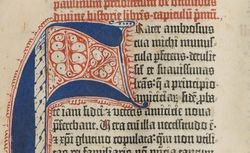 paulinum presbiterum de omnibus
diuine historie libris·capitulū pmū
Frater ambrosius
tua michi munus
cula pferens·detulit
sil et suauissimas
lras· q̄ a principio
amiciciar̄· fidē pba
te iam fidei et veteris amicicie noua
pferebant. Vera eni illa necessitudo ē·
et xpi glutino copulata· qm non utili